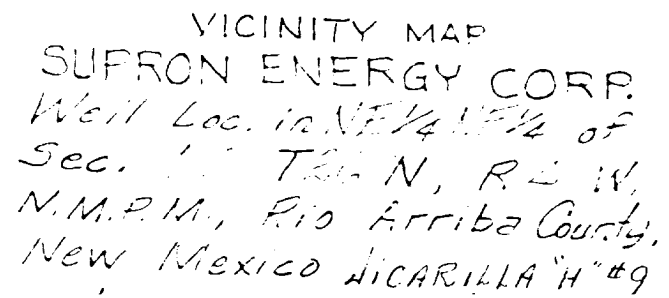 VICINITY MAP
SUPRON ENERGY CORP.
Well Loc. in NE1/4 NE1/4 of
Sec. N, R. W,
N.M.P.M., Rio Arriba County,
New Mexico JICARILLA "H" #9